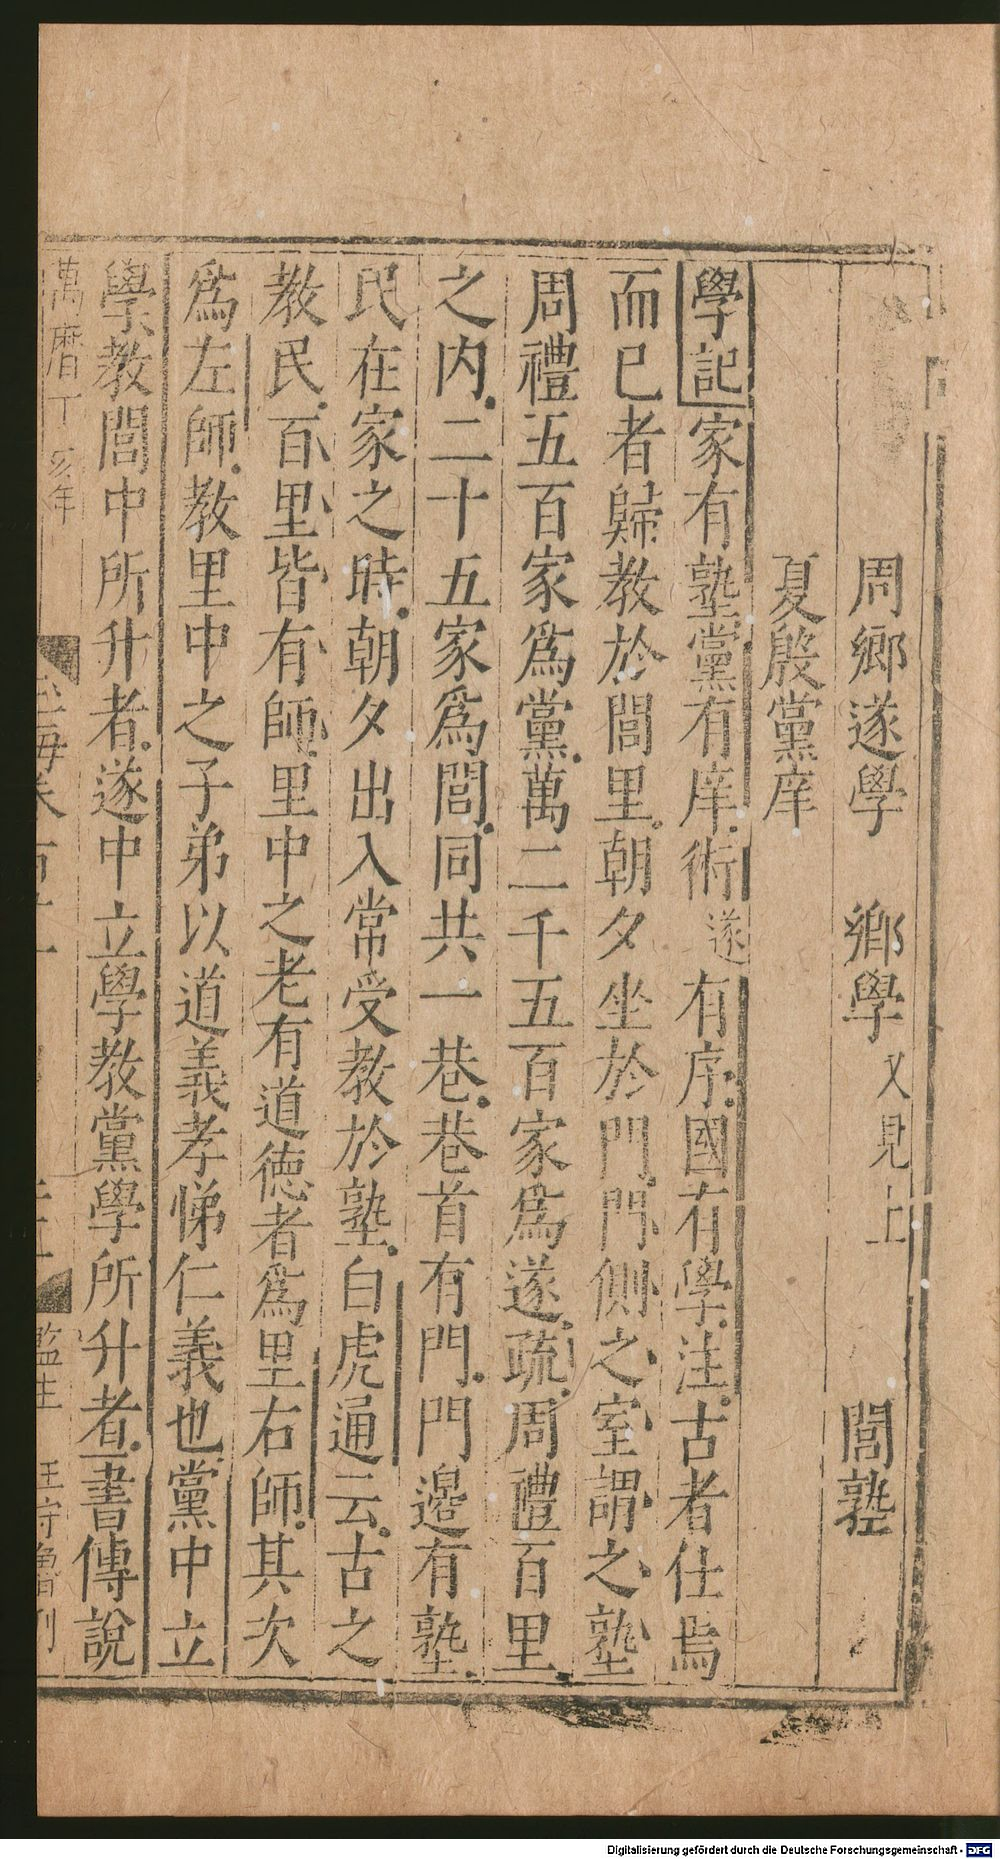 周鄉遂學　鄉學又見上　閭塾
夏殷黨庠
學記家有塾黨有庠術遂有序國有學注古者仕焉
而已者歸教於閭里朝夕坐於門門側之室謂之塾
周禮五百家爲黨萬二千五百家爲遂疏周禮百里
之内二十五家爲閭同共一巷巷首有門門邊有塾
民在家之時朝夕出入常受教於塾白虎通云古之
教民百里皆有師里中之老有道徳者爲里右師其次
爲左師教里中之子弟以道義孝悌仁義也黨中立
學教閭中所升者遂中立學教黨學所升者書傳說
萬曆丁亥年
監生　刊
Digitalisierung gefördert durch die Deutsche Forschungsgemeinschaft - DFG